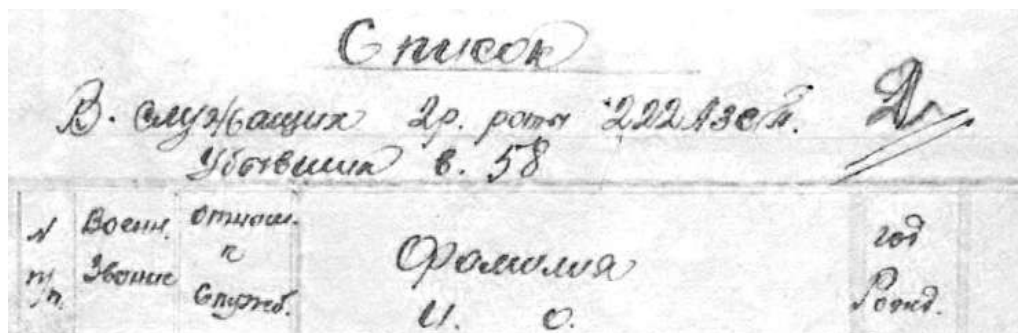 Список
В. служащих 2р. роты 222 АЗСП.
Убывших в. 58
N п/п. Военн. Звание Отнош. к Служб. Фамилия И. О. год Рожд.